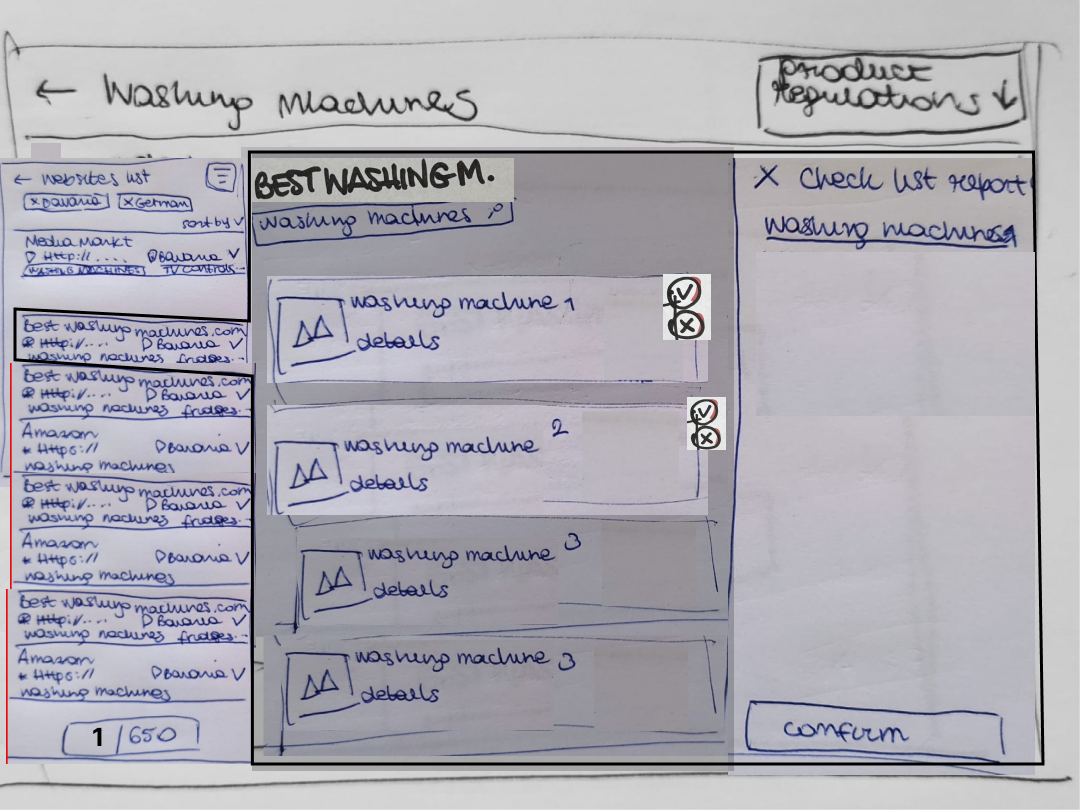 ← Washing Machines
product regulations ↓
← websites list
x Bavaria x German
sort by
Media Markt
Http://.... Bavaria
WASHING MACHINES TV CONTROLS...
Best washing machines.com
Http://.... Bavaria
washing machines fridges...
Best washing machines.com
Http://.... Bavaria
washing machines fridges...
Amazon
Https:// Bavaria
washing machines
Best washing machines.com
Http://.... Bavaria
washing machines fridges...
Amazon
Https:// Bavaria
washing machines
Best washing machines.com
Http://.... Bavaria
washing machines fridges...
Amazon
Https:// Bavaria
washing machines
1 / 650
BEST WASHING M.
washing machines
washing machine 1
details
washing machine 2
details
washing machine 3
details
washing machine 3
details
X Check list report
washing machines
confirm